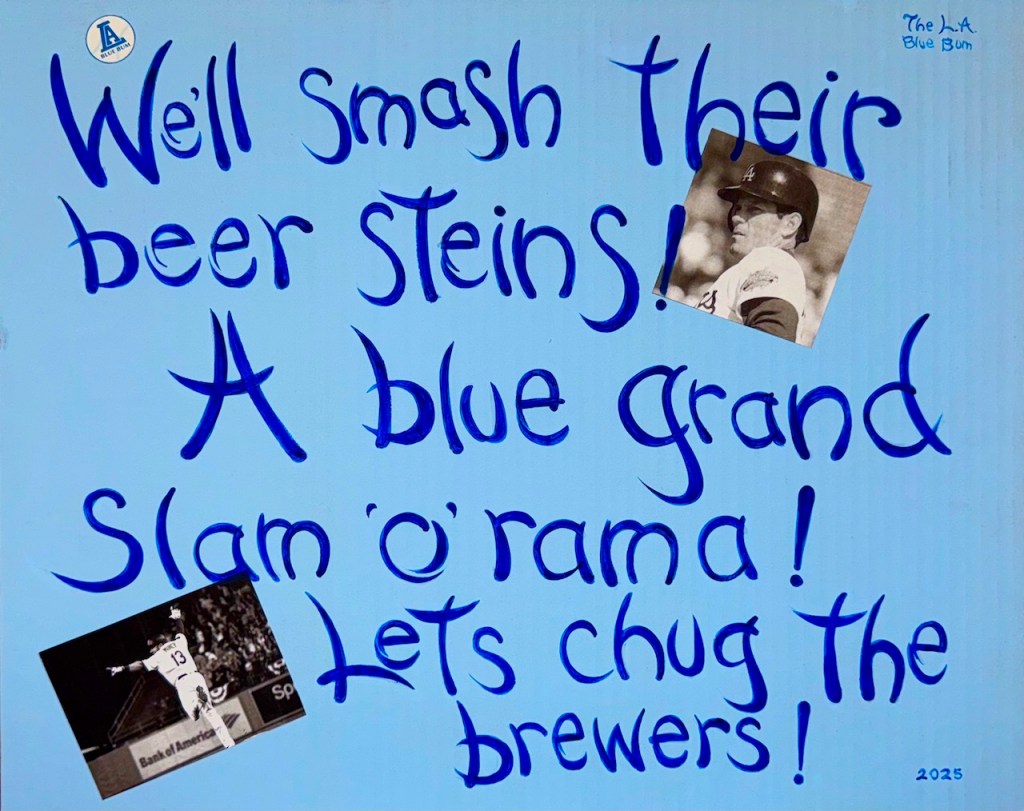 LA
BLUE BUM
The L.A.
Blue Bum
We'll smash their
beer steins!
A
A blue grand
Slam 'o' rama!
Lets chug the
brewers!
MUNCY
13
Sp
Bank of America
2025